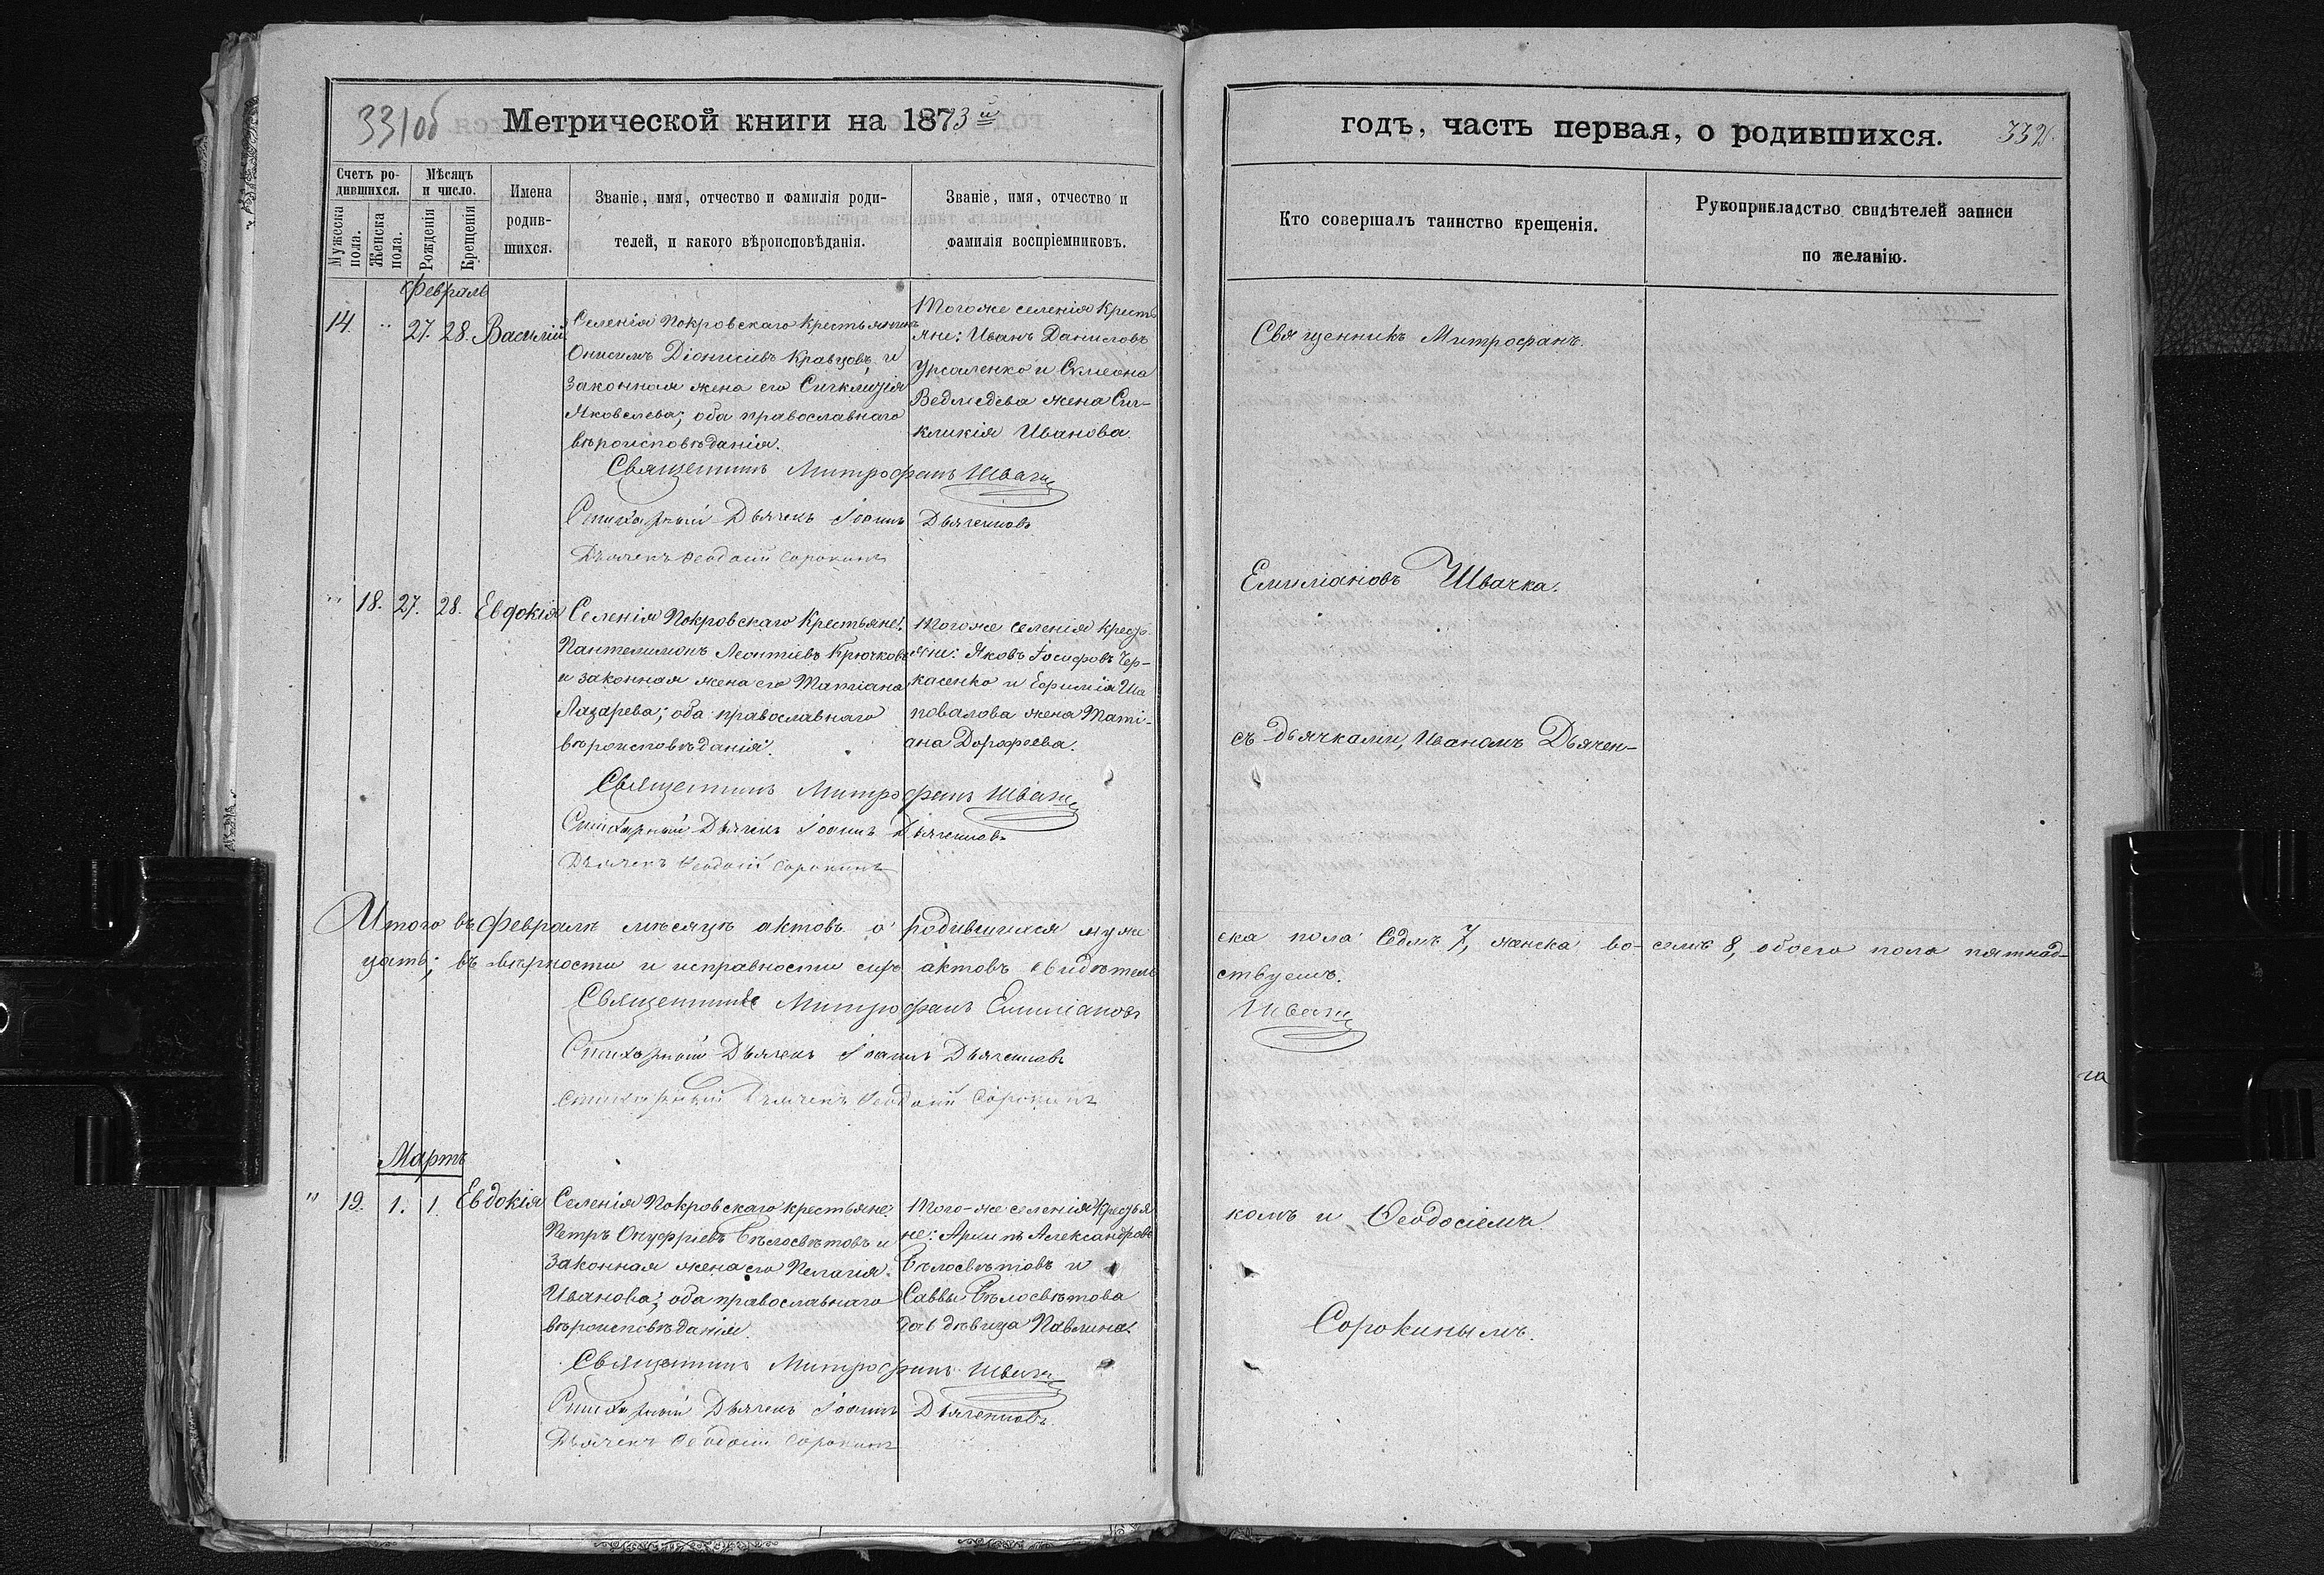 331об
Метрической книги на 1873й
Счетъ ро-
дившихся.
Мѣсяцъ
и число.
Мужеска
пола.
Женска
пола.
Рожденія
Крещенія
Имена
родив-
шихся.
Званіе, имя, отчество и фамилія роди-
телей, и какого вѣроисповѣданія.
Званіе, имя, отчество и
фамилія воспріемниковъ.
Февраль
14. " 27. 28. Василій
Селенія Покровскаго крестьянинъ
Онисимъ Діонисіевъ Кравцовъ, и
законная жена его Сигклизія
Яковлева; оба православнаго
вѣроисповѣданія.
Тогоже селенія Кресть
яне: Иванъ Даниловъ
Урсаленко и Сѵмеона
Ведмедева жена Син-
кликія Иванова.
Священникъ Митрофанъ Швачка
Стихарный Дьячекъ Іоаннъ Дьяченковъ
Дьячекъ Ѳеодосій Сорокинъ
" 18. 27. 28. Евдокія
Селенія Покровскаго Крестьяне:
Пантелимонъ Леонтіевъ Крючковъ
и законная жена его Татіана
Лазарева; оба православнаго
вѣроисповѣданія.
Тогоже селенія крест
яне: Яковъ Іосифовъ Чер-
касенко и Ефимія Ша
повалова жена Тати-
ана Дорофеева.
Священникъ Митрофанъ Швачка
Стихарный Дьячекъ Іоаннъ Дьяченковъ
Дьячекъ Ѳеодосій Сорокинъ
Итого въ Февралѣ мѣсяцѣ актовъ о родившихся муже
цать; въ вѣрности и исправности сихъ актовъ свидѣтель
Священникъ Митрофанъ Емиліановъ
Стихарный Дьячекъ Іоаннъ Дьяченковъ
Стихарный Дьячекъ Ѳеодосій Сорокинъ
Мартъ
" 19. 1. 1. Евдокія
Селенія Покровскаго крестьяне:
Петръ Онуфріевъ Бѣлосвѣтовъ и
законная жена его Пелагія
Иванова; оба православнаго
вѣроисповѣданія.
Того-же селенія Крестья
не: Архипъ Александровъ
Бѣлосвѣтовъ и
Саввы Бѣлосвѣтова
дочь дѣвица Павлина.
Священникъ Митрофанъ Швачка
Стихарный Дьячекъ Іоаннъ Дьяченковъ
Дьячекъ Ѳеодосій Сорокинъ
годъ, часть первая, о родившихся.
332
Кто совершалъ таинство крещенія.
Рукоприкладство свидѣтелей записи
по желанію.
Священникъ Митрофанъ
Емиліановъ Швачка.
съ дьячками, Иваномъ Дьячен-
ска пола седмь 7, женска во-семь 8, обоего пола пятнад-
ствуемъ.
Швачка
комъ и Ѳеодосіемъ
Сорокинымъ.